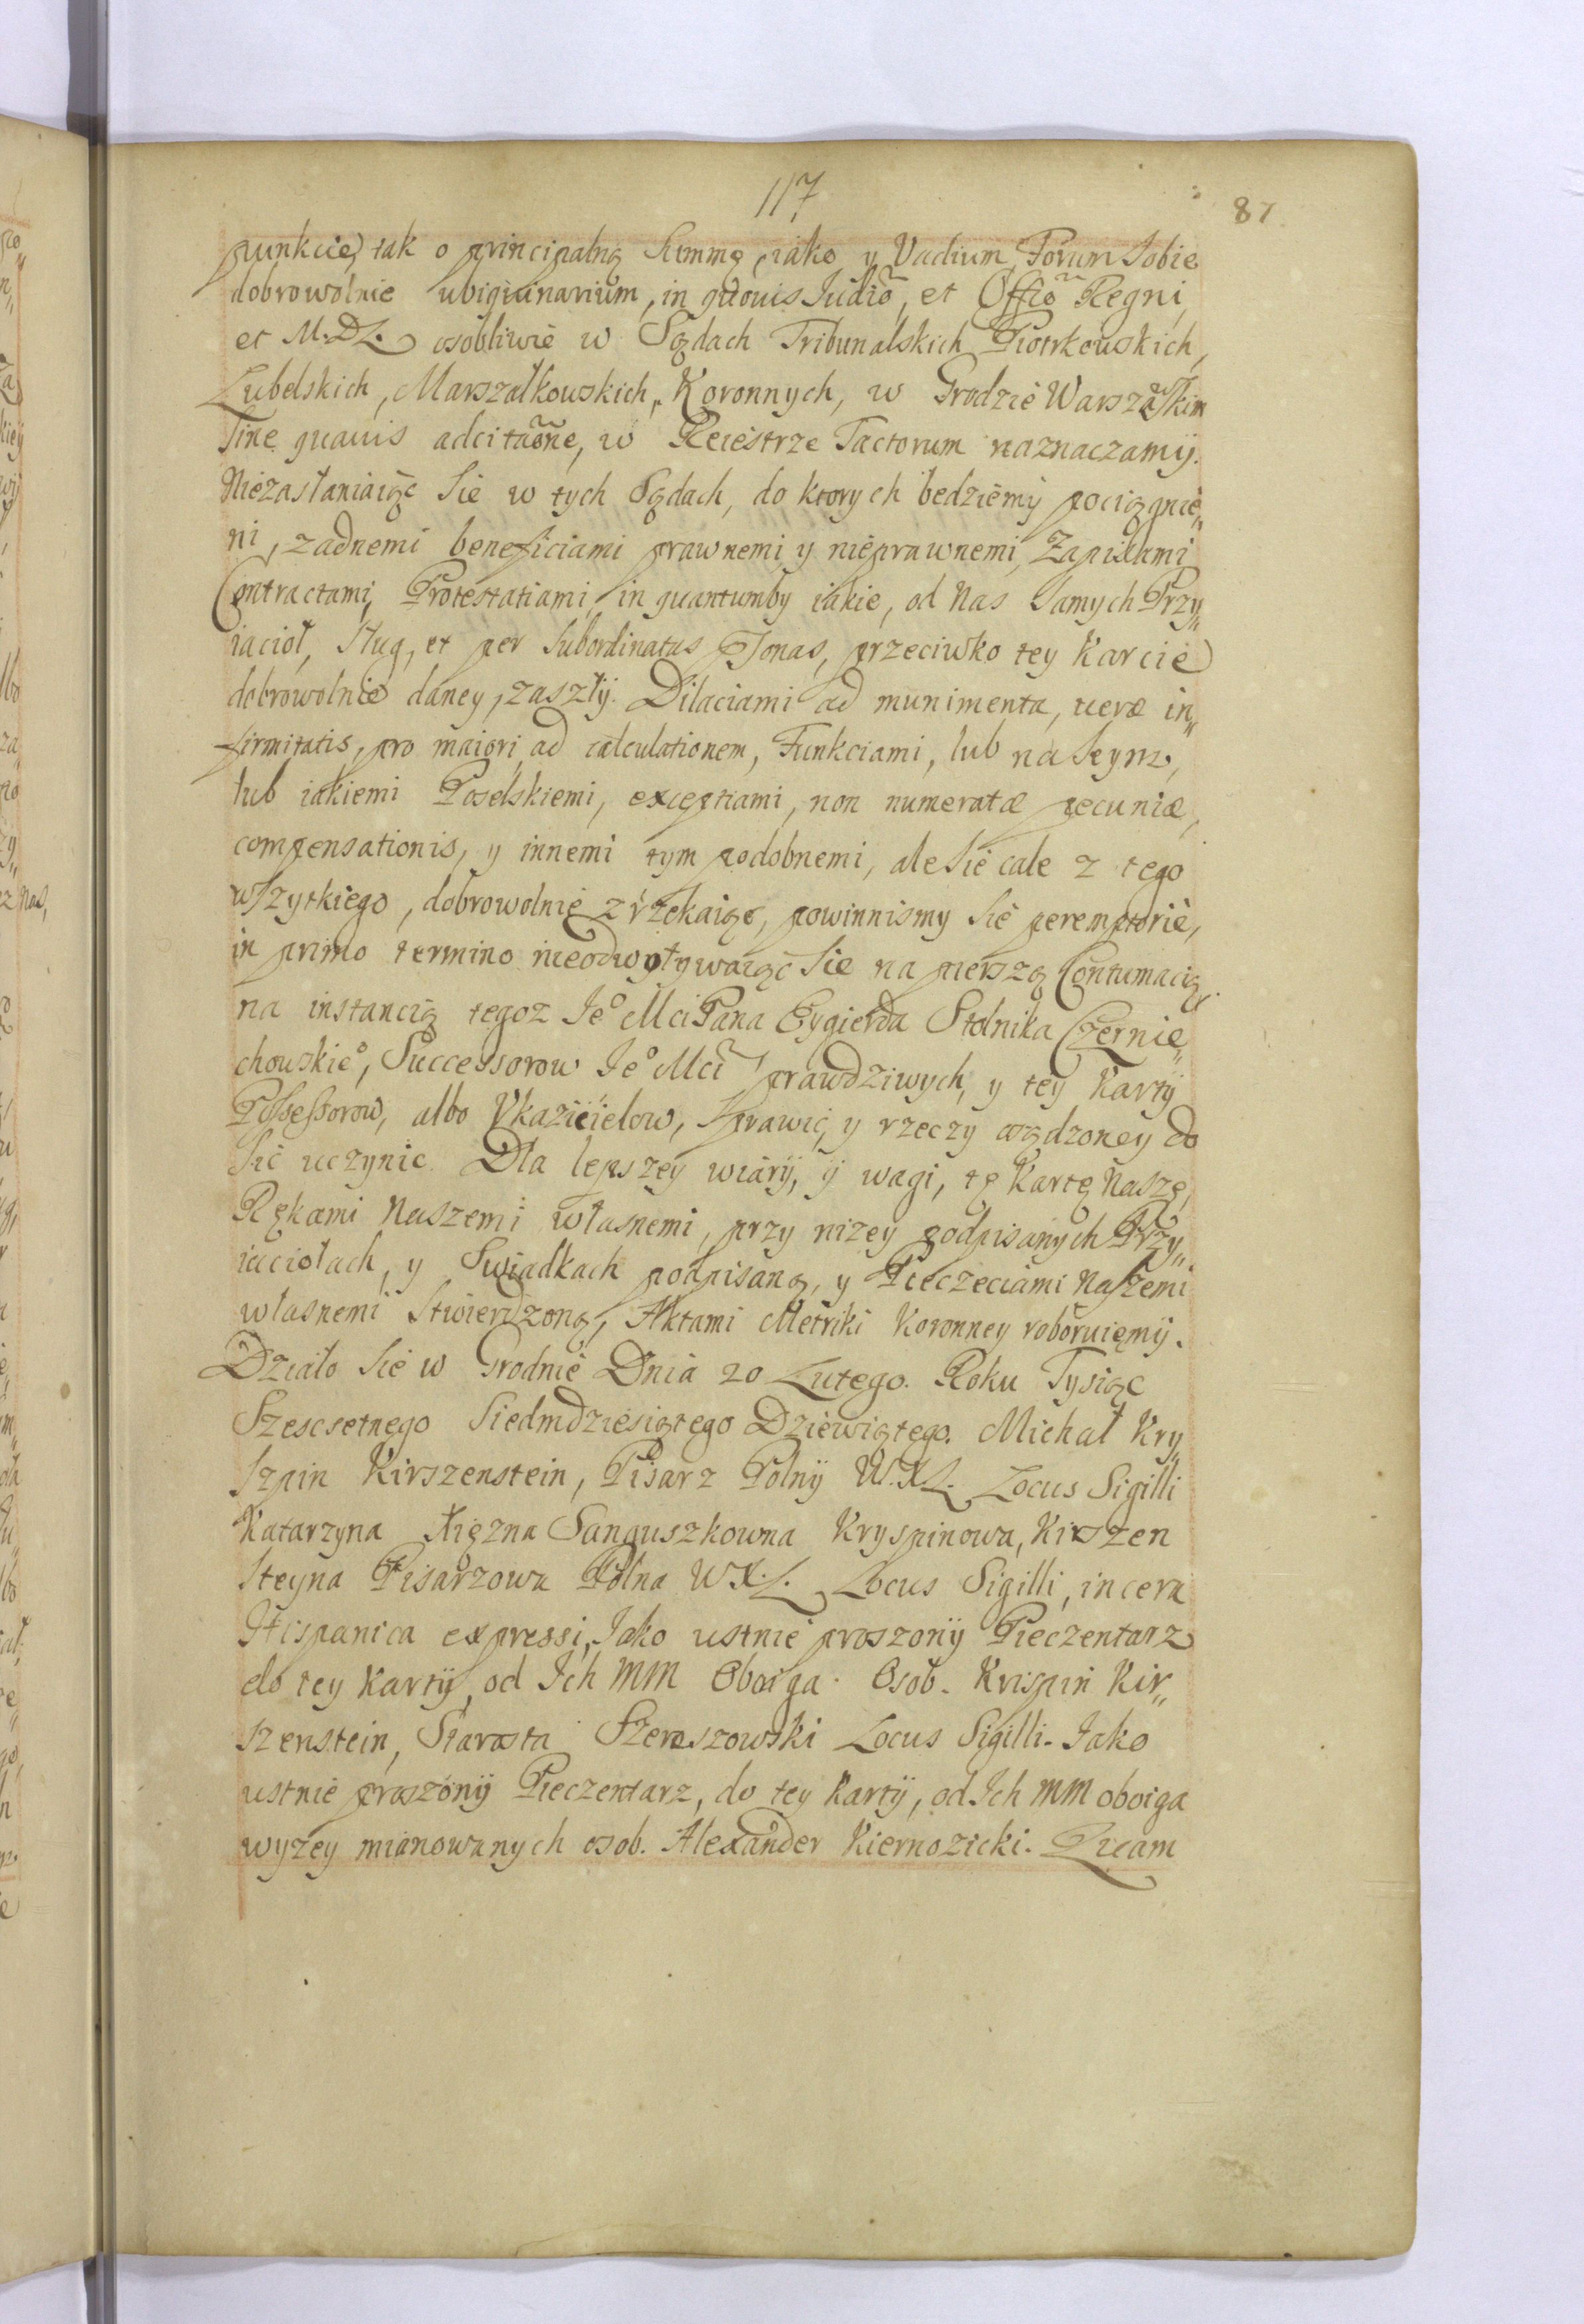 117
87
punkcie, tak o principalną Summę, iako y Vadium, Forum Sobie
dobrowolnie ubiquinarium, in quovis Iudio͠, et Offio͠ Regni,
et M.D.L. osobliwie w Sądach Tribunalskich Piotrkowskich,
Lubelskich, Marszałkowskich, Koronnych, w Grodzie Warszawskim
Sine quavis adcitao͠ne, w Reiestrze Factorum naznaczamÿ.
Niezasłaniaiąc Sie w tych Sądach, do ktorych bedziemÿ pociągnie„
ni, zadnemi beneficiami prawnemi y nieprawnemi, Zapisami
Contractami, Protestatiami, in quantumby iakie, od Nas Samych Przy„
iacioł, Sług, et per Subordinatas PSonas, przeciwko tey Karcie
dobrowolnie daney, zaszłÿ. Dilaciami ad munimenta, veræ in„
firmitatis, pro maiori, ad calculationem, Funkciami, lub na Seym,
lub iakiemi Poselskiemi, exceptiami, non numeratæ pecuniæ,
compensationis, y innemi tym podobnemi, ale Sie cale z tego
wszytkiego, dobrowolnie zrzekaiąc, powinnismy Sie peremptorie,
in primo termino nieodwoływaiąc Sie na pierszą Contumacią
na instancią tegoz Ieº Mci Pana Gygierda Stolnika Czernie„
chowskieº, Successorow Ieº Mci prawdziwych, y tey Kartÿ
Possessorow, albo Vkazicielow, Sprawic, y rzeczy osądzoney do
Sic uczynic. Dla lepszey wiarÿ, ÿ wagi, tę Kartę Naszę,
Rękami Naszemi własnemi, przy nizey podpisanych Przy„
iaciołach, y Swiadkach podpisaną, y Pieczeciami Naszemi
własnemi Stwierdzoną, Aktami Metriki Koronney roboruiemÿ.
Działo Sie w Grodnie Dnia 20 Lutego. Roku Tysiąc
Szescsetnego Siedmdziesiątego Dziewiątego. Michał Kry„
Szpin Kirszenstein, Pisarz Polnÿ W.X.L. Locus Sigilli
Katarzyna Xięzna Sanguszkowna Kryspinowa, Kirszen
Steyna Pisarzowa Polna WX.L. Locus Sigilli, in cera
Hispanica expressi, Iako ustnie proszonÿ Pieczentarz
do tey Kartÿ, od Ich MM Oboiga Osob. Krispin Kir„
szenstein, Starosta Szereszowski Locus Sigilli. Iako
ustnie proszonÿ Pieczentarz, do tey Kartÿ, od Ich MM oboiga
wyzey mianowanych osob. Alexander Kiernozicki. Quam